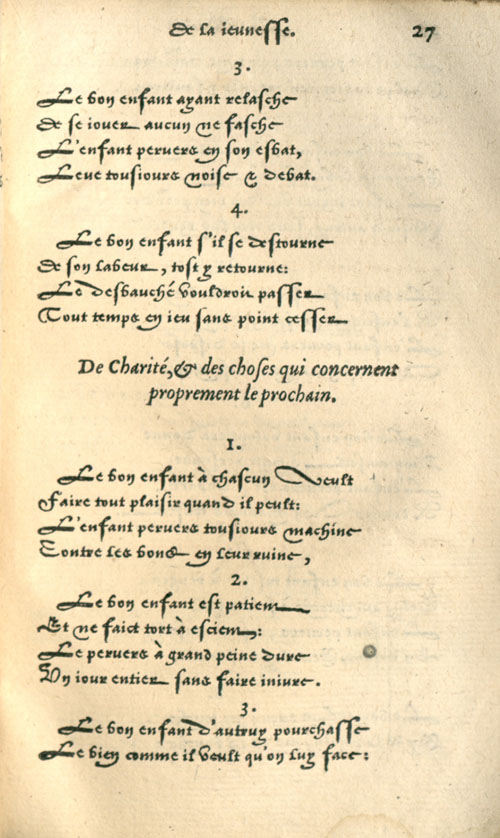 De la ieunesse. 27
3.
Le bon enfant ayant relasche
De se iouer aucun ne fasche
L'enfant pervers en son esbat,
Leve tousiours noise & debat.
4.
Le bon enfant s'il se destourne
De son labeur, tost y retourne:
Le desbauché vouldroit passer
Tout temps en ieu sans point cesser
De Charité, & des choses qui concernent
proprement le prochain.
1.
Le bon enfant à chascun Veult
Faire tout plaisir quand il peult:
L'enfant pervers tousiours machine
Contre les bons en leur ruine,
2.
Le bon enfant est patient
Et ne faict tort à escient:
Le pervers à grand peine dure
Vn iour entier sans faire iniure.
3.
Le bon enfant d'autruy pourchasse
Le bien comme il veult qu'on luy face: